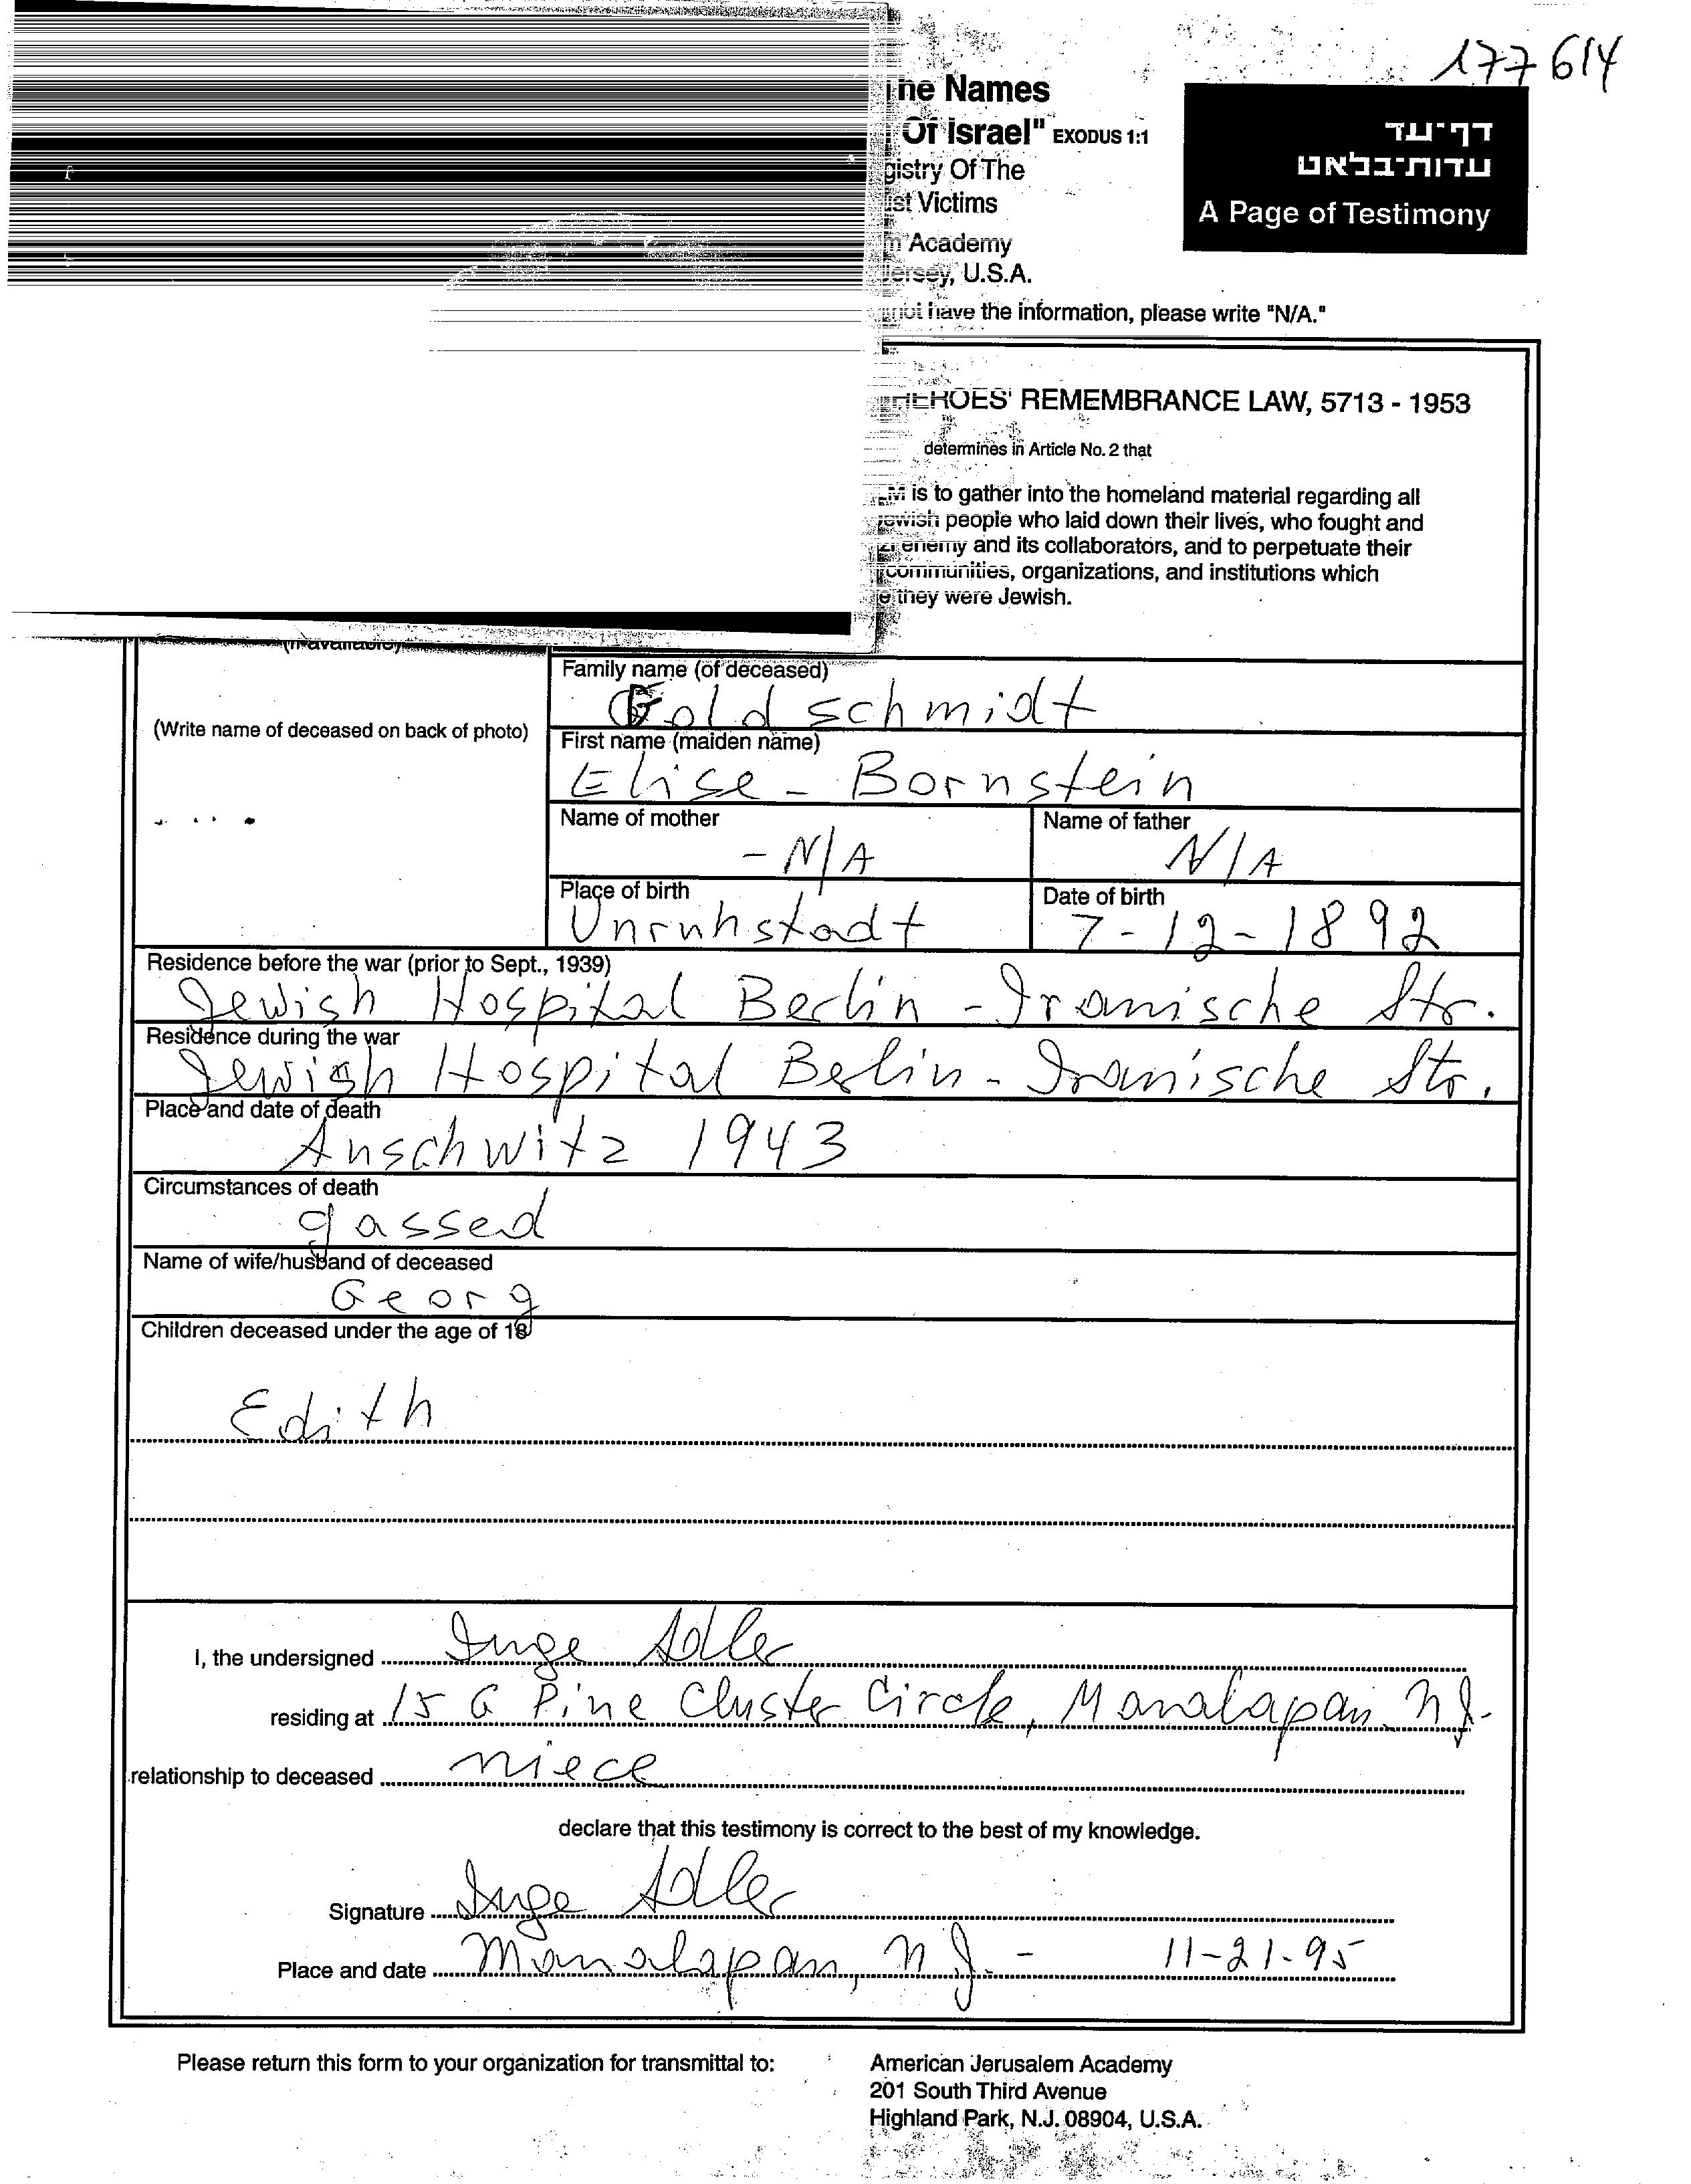 177614
Names
Of Israel" EXODUS 1:1
Of The
Victims
Academy
U.S.A.
דף-עד
עדות-בלאט
A Page of Testimony
have the information, please write "N/A."
HEROES' REMEMBRANCE LAW, 5713 - 1953
determines in Article No. 2 that
is to gather into the homeland material regarding all
Jewish people who laid down their lives, who fought and
enemy and its collaborators, and to perpetuate their
communities, organizations, and institutions which
they were Jewish.
(if available)
(Write name of deceased on back of photo)
Family name (of deceased)
Goldschmidt
First name (maiden name)
Elise - Bornstein
Name of mother
- N/A
Name of father
N/A
Place of birth
Unruhstadt
Date of birth
7-12-1892
Residence before the war (prior to Sept., 1939)
Jewish Hospital Berlin - Iranische Str.
Residence during the war
Jewish Hospital Berlin - Iranische Str.
Place and date of death
Auschwitz 1943
Circumstances of death
gassed
Name of wife/husband of deceased
Georg
Children deceased under the age of 18
Edith
I, the undersigned Inge Adler
residing at 15 G Pine Cluster Circle, Manalapan. N.J.
relationship to deceased niece
declare that this testimony is correct to the best of my knowledge.
Signature Inge Adler
Place and date Manalapan, N.J. - 11-21-95
Please return this form to your organization for transmittal to:
American Jerusalem Academy
201 South Third Avenue
Highland Park, N.J. 08904, U.S.A.